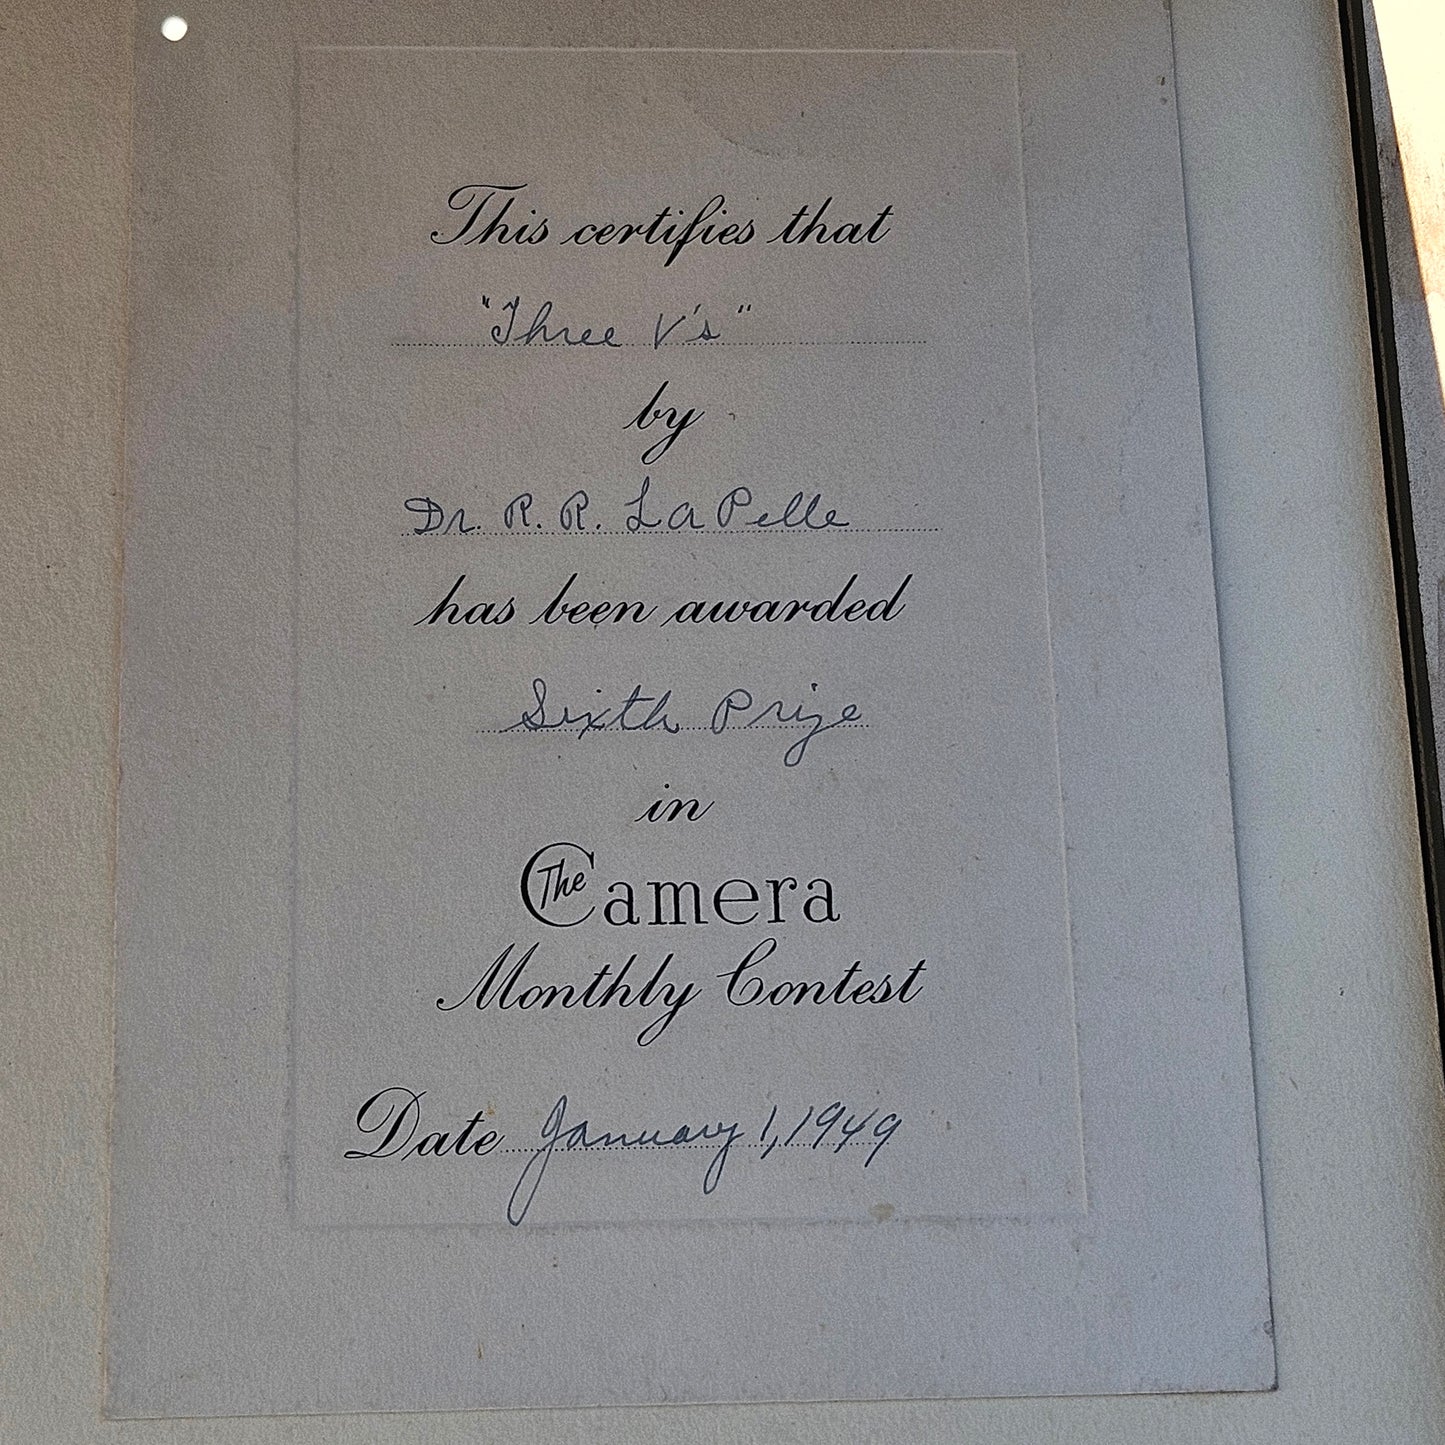 This certifies that
"Three V's"
by
Dr. R. R. LaPelle
has been awarded
Sixth Prize
in
The Camera
Monthly Contest
Date January 1, 1949